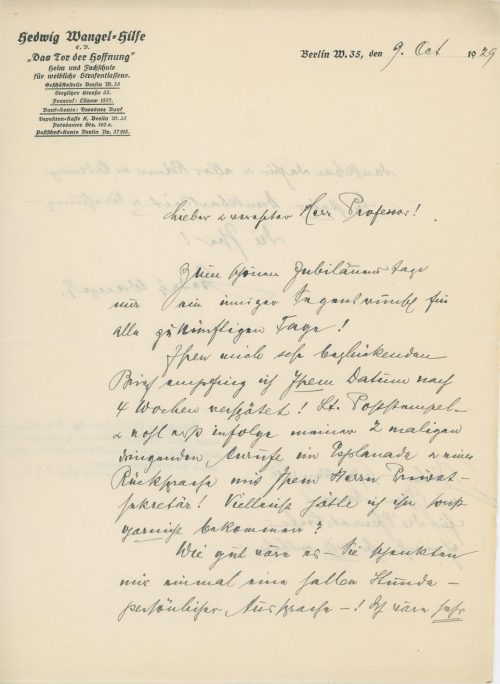 Hedwig Wangel-Hilfe
E. V.
„Das Tor der Hoffnung"
Heim und Fachschule
für weibliche Strafentlassene.
Geschäftsstelle Berlin W. 35
Steglitzer Straße 35.
Fernruf: Lützow 1857.
Bank-Konto: Dresdner Bank
Depositen-Kasse K, Berlin W. 35
Potsdamer Str. 103 a.
Postscheck-Konto Berlin No. 37 253.
Berlin W. 35, den 9. Oct 1929
Lieber & verehrter Herr Professor!
Zum schönen Jubiläums tage
nur ein inniger Segenswunsch für
alle zukünftigen Tage!
Ihren mich sehr beglückenden
Brief empfing ich Ihrem Datum nach
4 Wochen verspätet! Lt. Poststempel –
& wohl erst infolge meiner 2 maligen
dringenden Anrufe im Esplanade & einer
Rücksprache mit Ihrem Herrn Privat-
sekretär! Vielleicht hätte ich ihn sonst
garnicht bekommen?
Wie gut wäre es – Sie schenkten
mir einmal eine halbe Stunde –
persönlicher Aussprache –! Ich wäre sehr